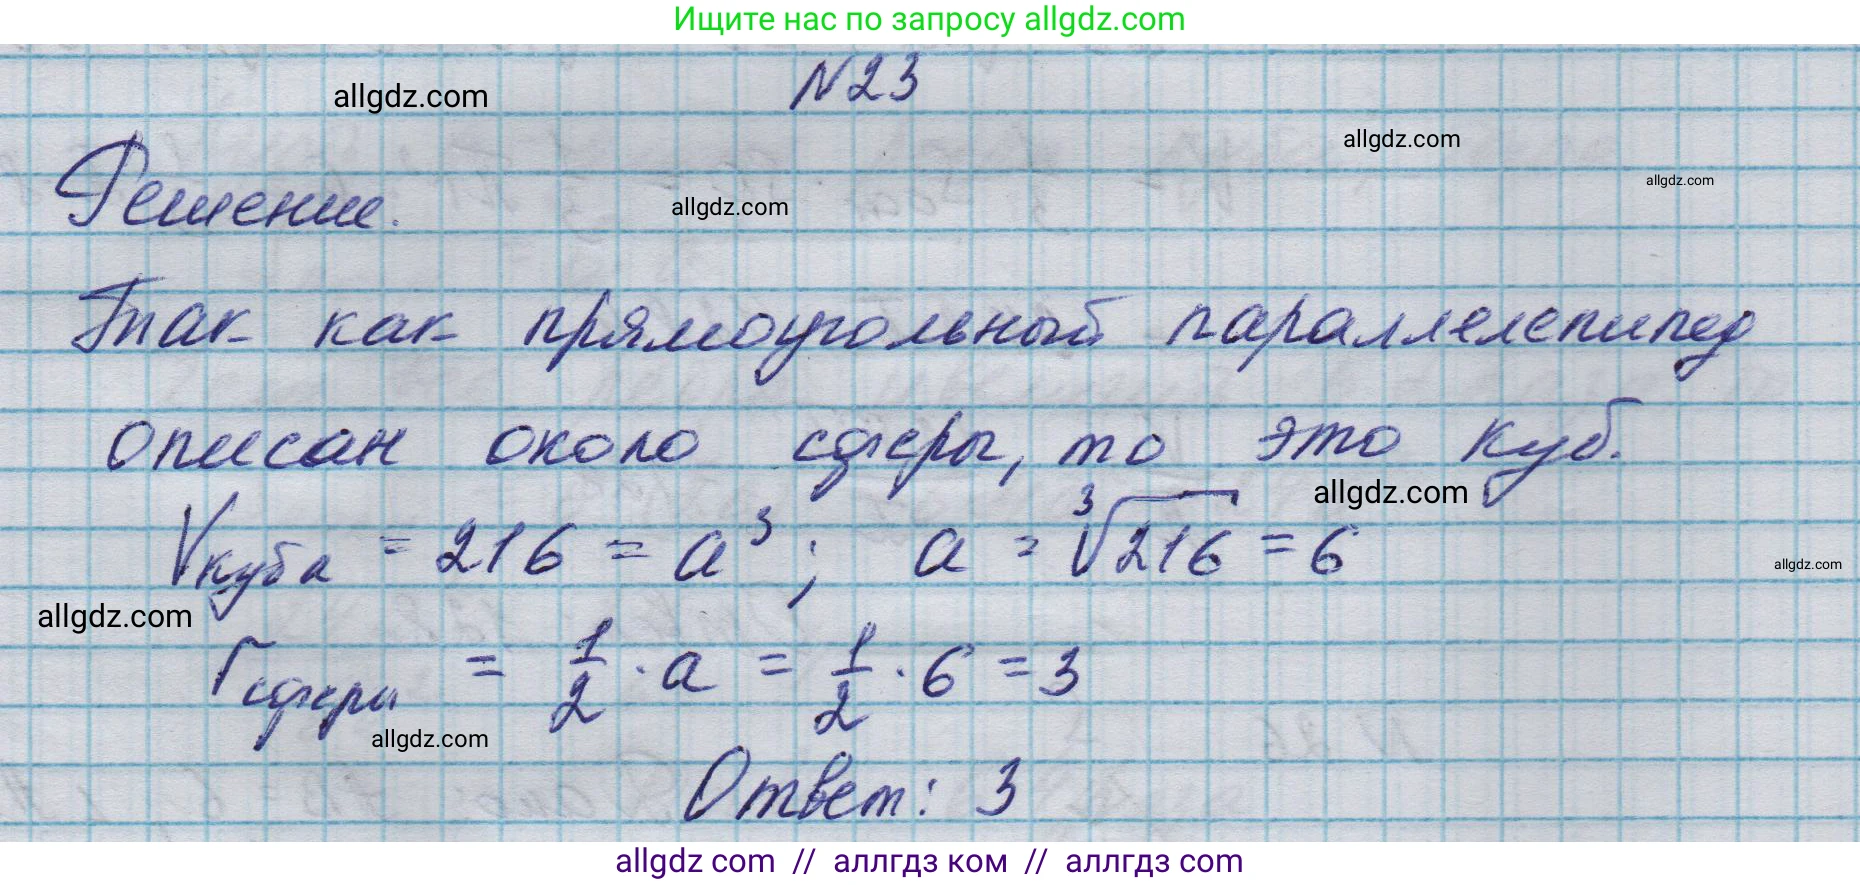 Ищите нас по запросу allgdz.com
N23
allgdz.com
allgdz.com
allgdz.com
Решение.
allgdz.com
Так как прямоугольный параллелепипед
описан около сферы, то это куб.
allgdz.com
Vкуба = 216 = a³; a = ³√216 = 6
allgdz.com
allgdz.com
rсферы = 1/2 · a = 1/2 · 6 = 3
allgdz.com
Ответ: 3
allgdz com // аллгдз ком // аллгдз com